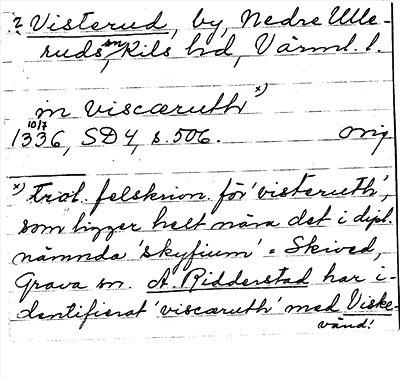 ? Visterud, by, Nedre Ulle-
ruds sn, Kils hd, Värml. l.
in viscæruth x)
1336 10/7, SD 4, s. 506. orig
x) trol. felskrivn. för 'visteruth',
som ligger helt nära det i dipl.
nämnda 'skyfium' = Skived,
Grava sn. A. Ridderstad har i-
dentifierat 'viscæruth' med Viske-
vänd!